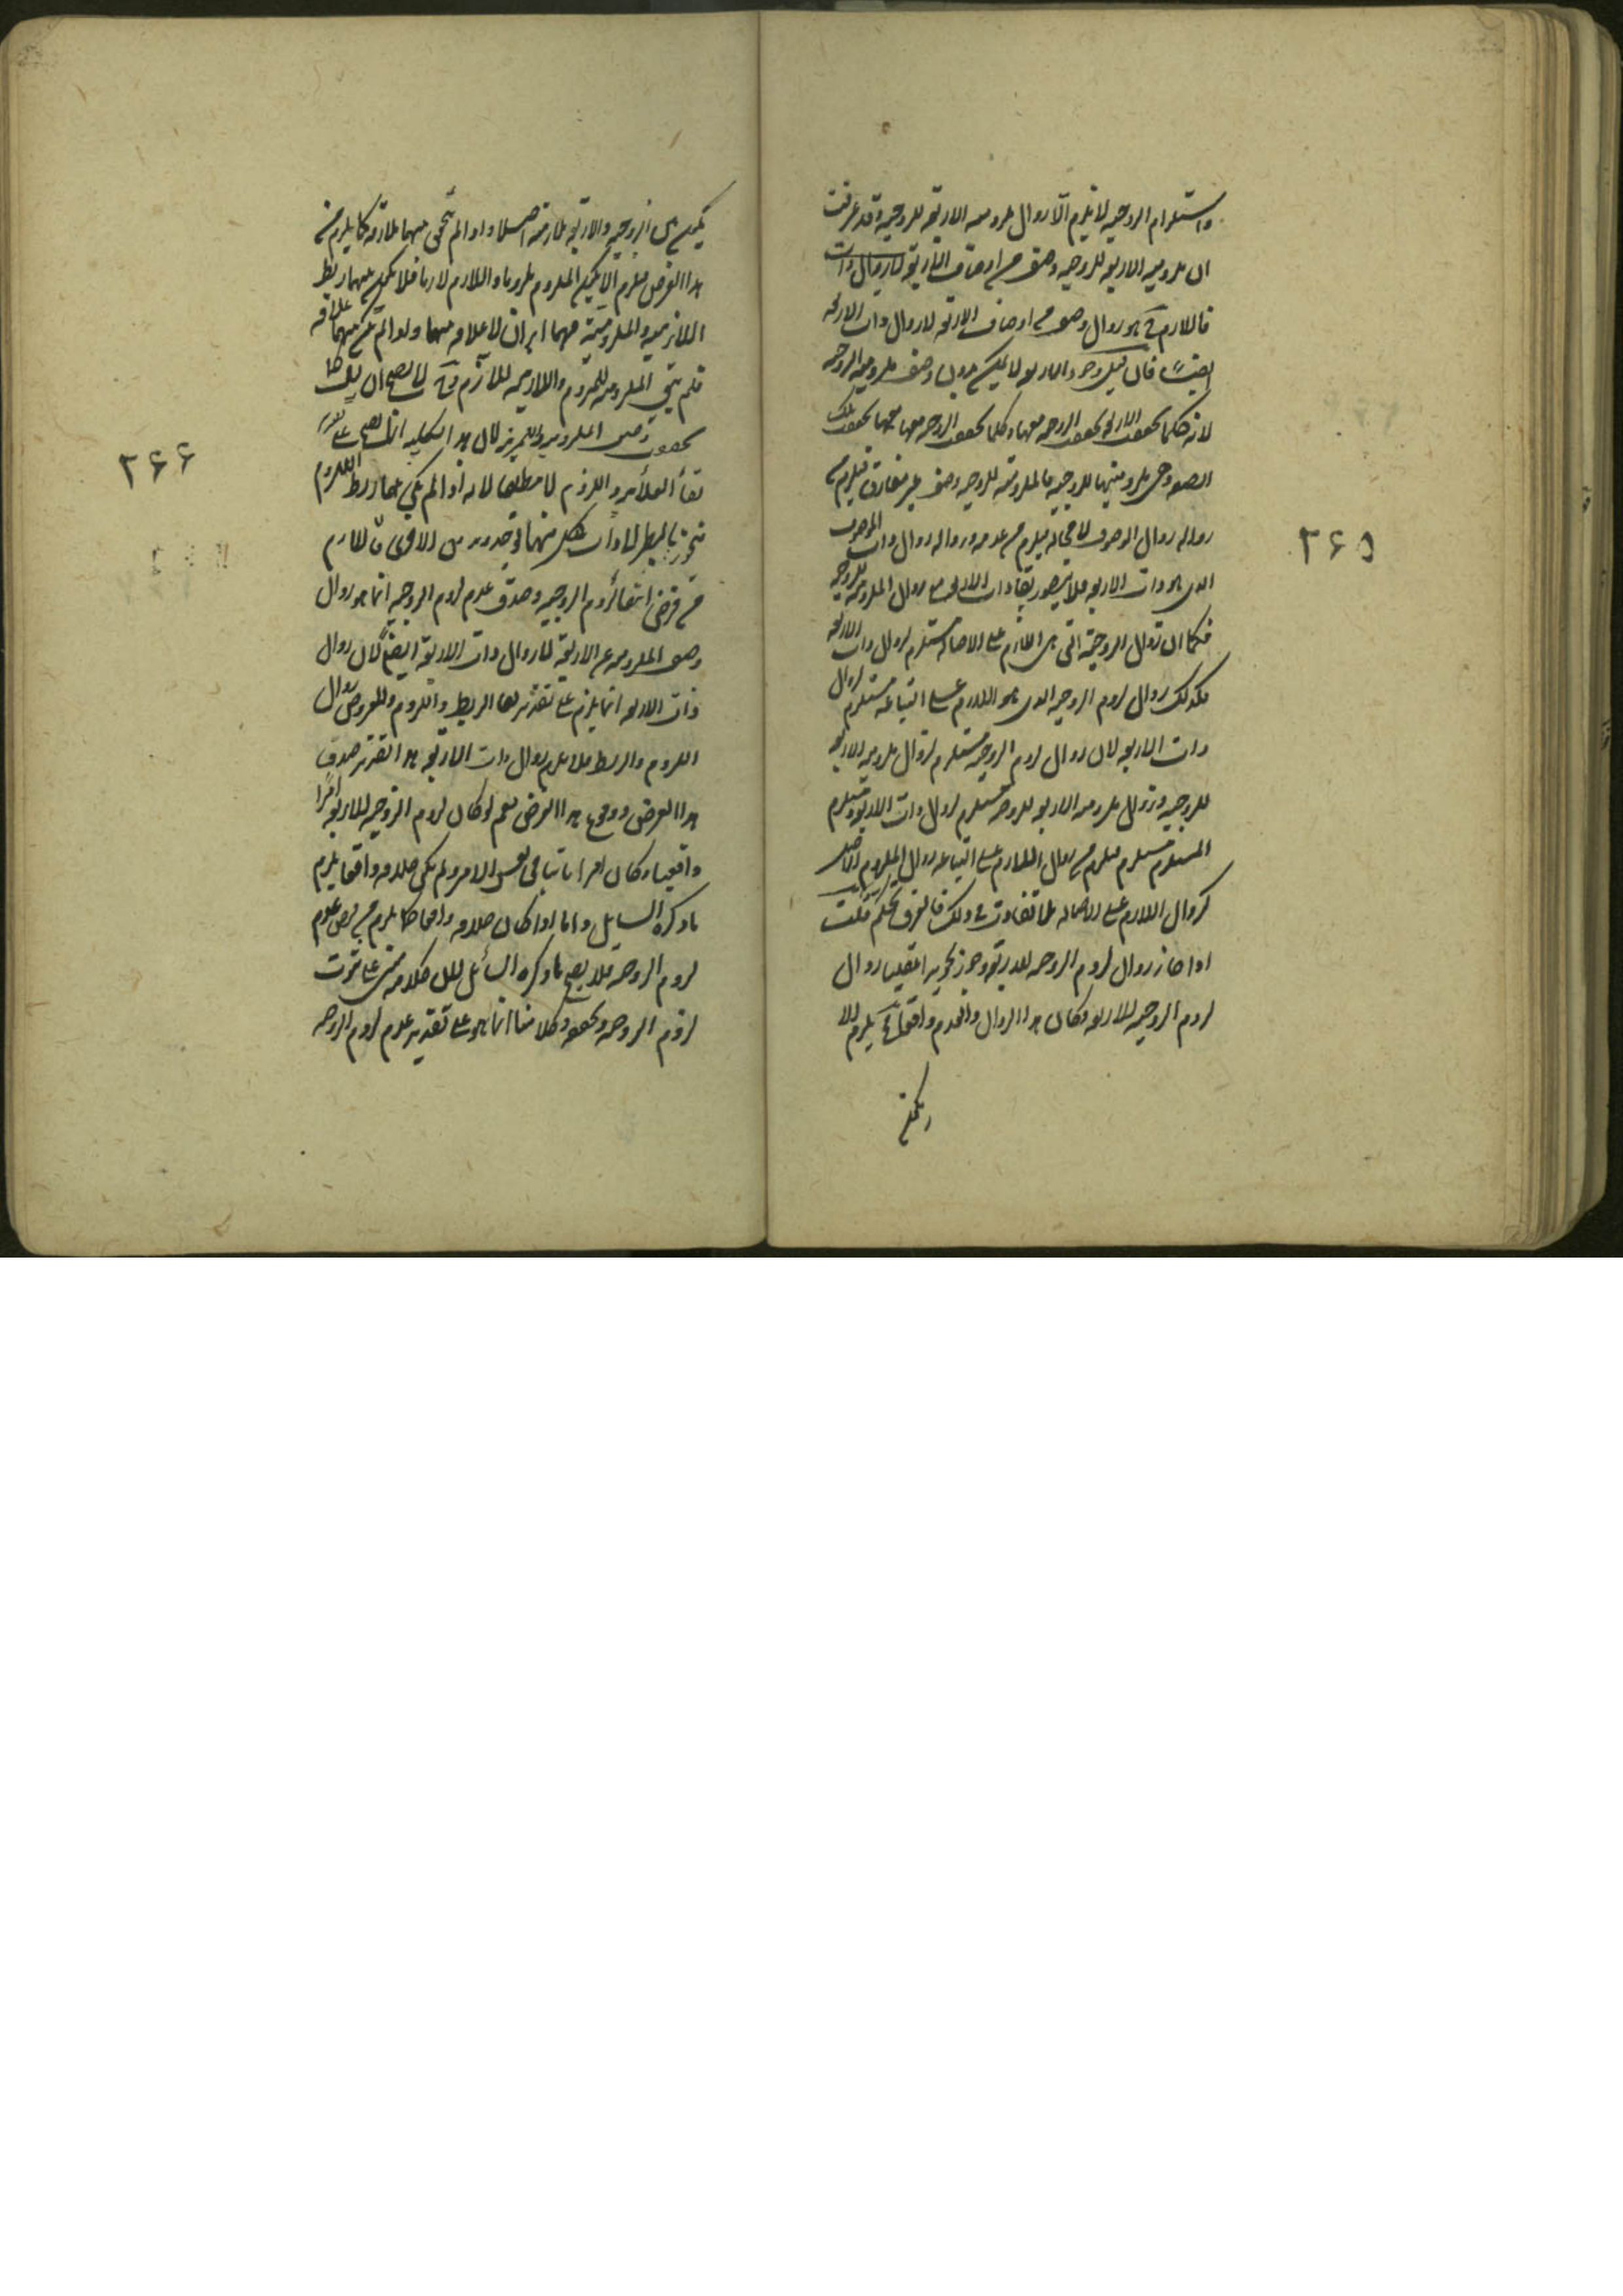 واستلزام الزوجية لا يلزم الا زوال ملزومية الاربعة للزوجية وقد عرفت
ان ملزومية الاربعة للزوجية وصف من اوصاف الاربعة لا زوال ذات
فاللازم ح هو زوال وصف من اوصاف الاربعة لا زوال ذات الاربعة
ايضا فان قيل وجود الاربعة لا يمكن بدون وصف ملزومية الزوجية
لانه كلما تحقق الاربعة تحقق الزوجية معها وكلما تحقق الزوجية معها تحقق تلك
الصفة وهي ملزوميتها للزوجية فالملزومية للزوجية وصف غير مفارق فيلزم من
زواله زوال الموصوف لا محالة فيلزم من عدمه وزواله زوال ذات الموصوف
الذي هو ذات الاربعة فلا يتصور بقاء ذات الاربعة مع زوال الملزومية للزوجية
فكما ان زوال الزوجية التي هي اللازم على الاصالة مستلزم لزوال ذات الاربعة
فكذلك زوال لزوم الزوجية الذي هو اللازم على التباعة مستلزم لزوال
ذات الاربعة لان زوال لزوم الزوجية مستلزم لزوال ملزومية الاربعة
للزوجية وزوال ملزومية الاربعة للزوجية مستلزم لزوال ذات الاربعة ومستلزم
المستلزم مستلزم فيلزم من زوال اللازم على التباعة زوال الملزوم الاصل
كزوال اللازم على الاصالة فلا تفاوت في ذلك فالفرق تحكم قلت
اذا جاز زوال لزوم الزوجية للاربعة وجوز تجويزا عقليا زوال
لزوم الزوجية للاربعة وكان هذا الزوال والعدم واقعا ح يلزم ان لا
يكون
يكون بين الزوجية والاربعة ملازمة اصلا واذا لم يتحقق بينهما ملازمة كما يلزم من
هذا الفرض فيلزم ان لا يكون الملزوم ملزوما واللازم لازما فلا يكون بينهما ربط
اللازمية والملزومية فهما امران لا علاقة بينهما ولو لم يكن بينهما علاقة
فلم يبق الملزومية للملزوم واللازمية لللازم ح لا يصح ان يقال كلما
تحققت
بقاء العلاقة واللزوم لا مطلقا لانه اذا لم يكن بينهما ربط اللزوم
فيجوز بالنظر الى ذات كل منهما ان يوجد بدون الاخرى فاللازم
من فرض انتفاء لزوم الزوجية وصدق عدم لزوم الزوجية انما هو زوال
وصف الملزومية عن الاربعة لا زوال ذات الاربعة ايضا لان زوال
ذات الاربعة انما يلزم على تقدير بقاء الربط واللزوم والمفروض زوال
اللزوم والربط فلا يلزم زوال ذات الاربعة هذا التقدير صدق
هذا الفرض ووقوع هذا الفرض نعم لو كان لزوم الزوجية للاربعة امرا
واقعيا وكان امرا ثابتا في نفس الامر ولم يكن خلافه واقعا يلزم
ما ذكره السائل واما اذا كان خلافه واقعا كما يلزم من فرض عدم
لزوم الزوجية فلا يصح ما ذكره السائل لان كلامه مبني على ثبوت
لزوم الزوجية وتحققه وكلامنا انما هو على تقدير عدم لزوم الزوجية
۲۶۵
۲۶۶